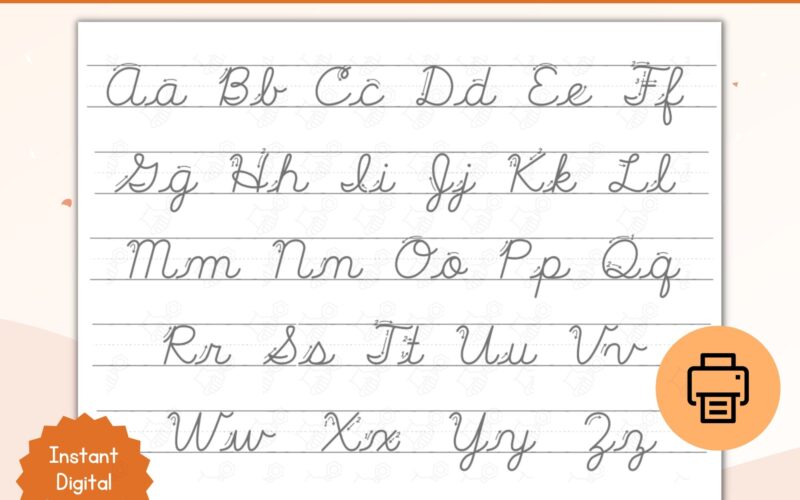 Aa Bb Cc Dd Ee Ff
Gg Hh Ii Jj Kk Ll
Mm Nn Oo Pp Qq
Rr Ss Tt Uu Vv
Ww Xx Yy Zz
Instant
Digital